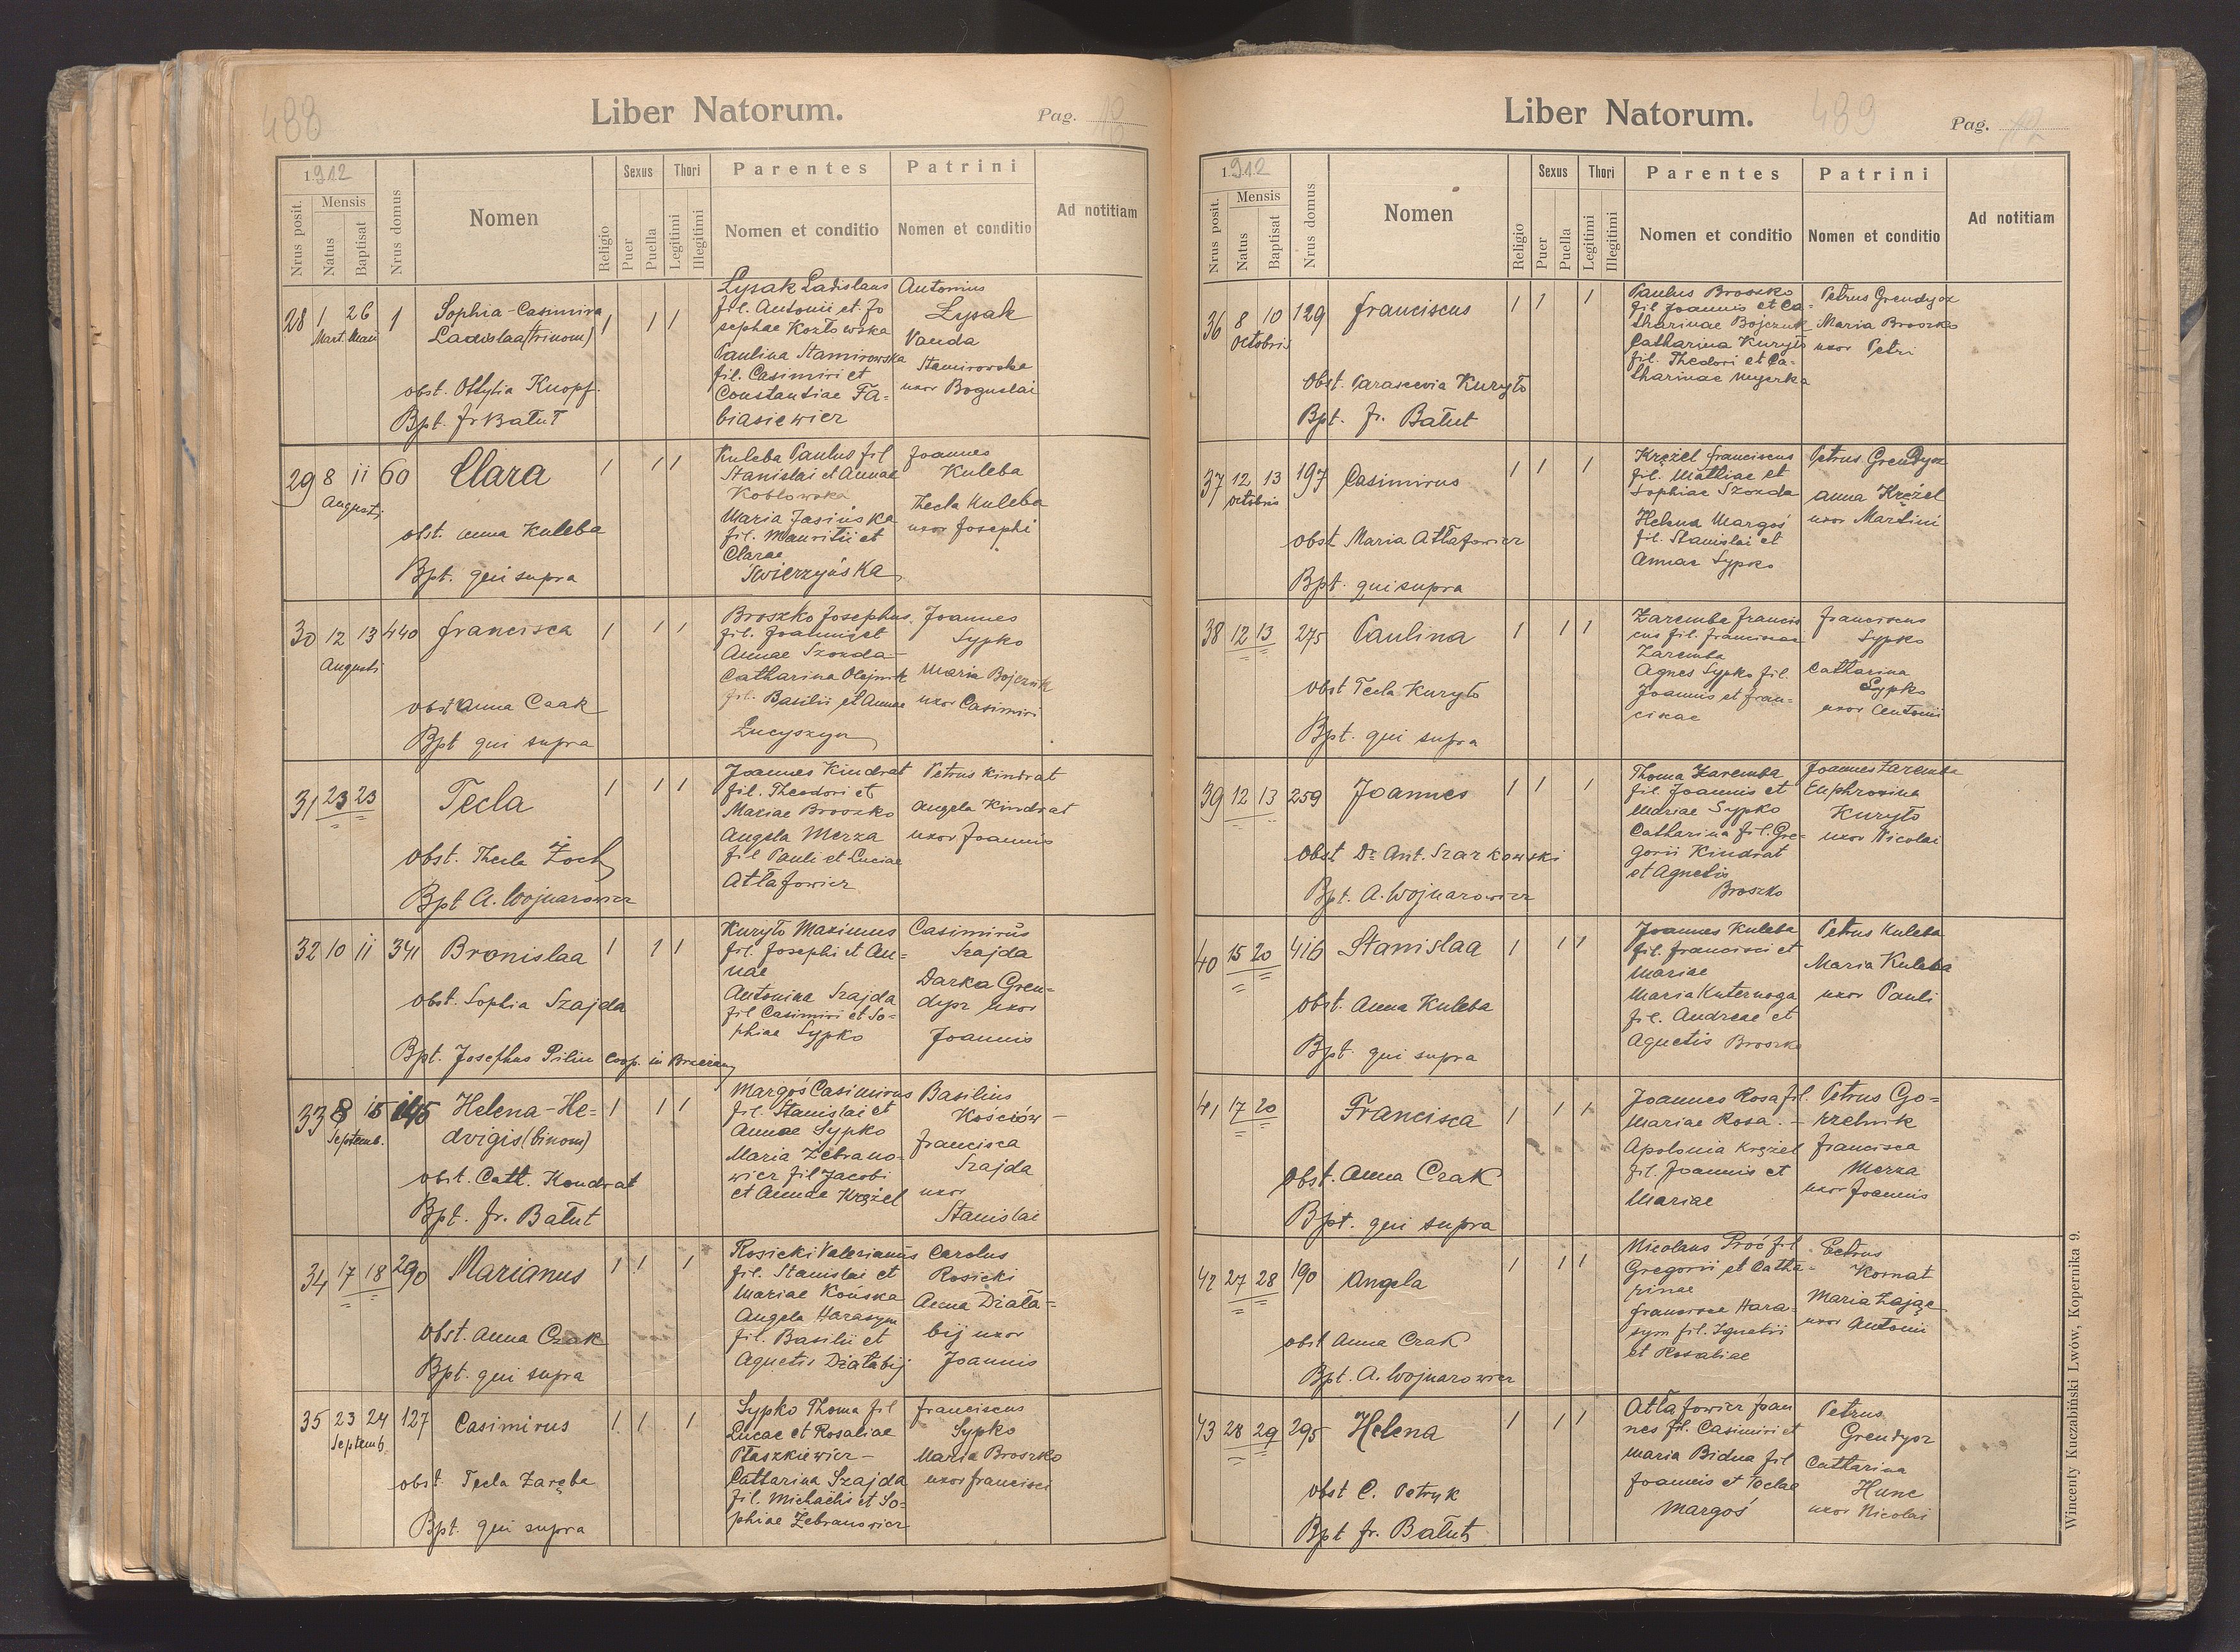 488
Liber Natorum.
Pag. 
1912
Nrus posit.
Mensis
Natus
Baptisat
Nrus domus
Nomen
Religio
Sexus
Puer
Puella
Thori
Legitimi
Illegitimi
Parentes
Nomen et conditio
Patrini
Nomen et conditio
Ad notitiam
28 1 26 1
Mart. Maii
Sophia-Casimira
Ladislaa (trinom)
1 1 1
obst. Ottylia Knopf.
Bpt. fr Batut
Lysak Ladislaus
fil. Antonii et Jo
sephae Kozłowska
Paulina Stamirowska
fil. Casimiri et
Constantiae Fa=
biasiewicz
Antonius
Lysak
Vanda
Stamirowska
uxor Boguslai
29 8 11 60
Augusti
Clara
1 1 1
obst. Anna Kuleba
Bpt. qui supra
Kuleba Paulus fil
Stanislai et Annae
Kobłowska
Maria Jasińska
fil. Mauritii et
Clarae
Swierzyńska
Joannes
Kuleba
Thecla Kuleba
uxor Josephi
30 12 13 440
Augusti
Francisca
1 1 1
obst Anna Czak
Bpt qui supra
Broszko Josephus.
fil. Joannis et
Annae Szozda
Catharina Olejnik
fil. Basilii et Annae
Łucyszyn
Joannes
Sypko
Maria Bojczuk
uxor Casimiri
31 23 23
Tecla
1 1 1
obst. Thecla Żoch
Bpt A. Wojnarowicz
Joannes Kindrat
fil. Theodori et
Mariae Broszko
Angela Merza
fil Pauli et Luciae
Atłafowicz
Petrus Kindrat
Angela Kindrat
uxor Joannis
32 10 11 341
Bronislaa
1 1 1
Obst. Sophia Szajda
Bpt. Josephus Pilin coop. in Brzeżany
Kuryło Maximus
fil. Josephi et An=
nae
Antonina Szajda
fil Casimiri et So=
phiae Sypko
Casimirus
Szajda
Darka Gren=
dysz uxor
Joannis
33 8 15 145
Septemb.
Helena-He=
dvigis (binom)
1 1 1
obst. Cath. Kondrat
Bpt. fr. Batut
Margoś Casimirus
fil. Stanislai et
Annae Sypko
Maria Żebrano-
wicz fil Jacobi
et Annae Krężel
Basilius
Kościów
Francisca
Szajda
uxor
Stanislai
34 17 18 290
Marianus
1 1 1
Obst. Anna Czak
Bpt. qui supra
Rosicki Valerianus
fil. Stanislai et
Mariae Końska
Angela Harasym
fil. Basilii et
Agnetis Działabij
Carolus
Rosicki
Anna Działa=
bij uxor
Joannis
35 23 24 127
Septemb.
Casimirus
1 1 1
obst. Tecla Zaręba
Bpt. qui supra
Sypko Thoma fil
Lucae et Rosaliae
Ptaszkiewicz-
Catharina Szajda
fil. Michaelis et So=
phiae Żebranowicz
Franciscus
Sypko
Maria Broszko
uxor Francisci
489
Liber Natorum.
Pag. 
1912
Nrus posit.
Mensis
Natus
Baptisat
Nrus domus
Nomen
Religio
Sexus
Puer
Puella
Thori
Legitimi
Illegitimi
Parentes
Nomen et conditio
Patrini
Nomen et conditio
Ad notitiam
36 8 10 129
Octobris
Franciscus
1 1 1
Obst. Parascevia Kuryło
Bpt. fr. Batut
Paulus Broszko
fil Joannis et Ca=
tharinae Bojczuk
Catharina Kuryło
fil. Theodori et Ca-
tharinae
Petrus Grendysz
Maria Broszko
uxor Petri
37 12 13 197
Octobris
Casimirus
1 1 1
obst Maria Atłafowicz
Bpt. qui supra
Krężel Franciscus
fil. Mathiae et
Sophiae Szozda
Helena Margoś
fil. Stanislai et
Annae Sypko
Petrus Grendysz
Anna Krężel
uxor Martini
38 12 13 275
Paulina
1 1 1
obst Tecla Kuryło
Bpt. qui supra
Zaremba Francis
cus fil. Franciscae
Zaremba
Agnes Sypko fil.
Joannis et Fran-
ciscae
Franciscus
Sypko
Catharina
Sypko
uxor Antonii
39 12 13 259
Joannes
1 1 1
Obst Dr Ant. Szarkowski
Bpt. A. Wojnarowicz
Thoma Zaremba
fil. Joannis et
Mariae Sypko
Catharina fil. Gre=
gorii Kindrat
et Agnetis
Broszko
Joannes Zaremba
Euphrosina
Kuryło
uxor Nicolai
40 15 20 416
Stanislaa
1 1 1
Obst. Anna Kuleba
Bpt. qui supra
Joannes Kuleba
fil. Francisci et
Mariae
Maria Kuternoga
fil. Andreae et
Agnetis Broszko
Petrus Kuleba
Maria Kuleba
uxor Pauli
41 17 20
Francisca
1 1 1
Obst. Anna Czak
Bpt. qui supra
Joannes Rosa fil.
Mariae Rosa. -
Apolonia Krężel
fil. Joannis et
Mariae
Petrus Go=
rzelnik
Francisca
Merza
uxor Joannis
42 27 28 190
Angela
1 1 1
obst Anna Czak
Bpt. A. Wojnarowicz
Nicolaus Proć fil
Gregorii et Catha=
rinae
Francisca Hara=
sym fil. Ignatii
et Rosaliae
Petrus
Kornat
Maria Zając
uxor Antonii
43 28 29 295
Helena
1 1 1
obst C. Petryk
Bpt fr. Batut
Atłafowicz Joan
nes fil. Casimiri et
Maria Bidna fil
Joannis et Teclae
Margoś
Petrus
Grendysz
Catharina
Hunc
uxor Nicolai
Wincenty Kuczabiński Lwów, Kopernika 9.